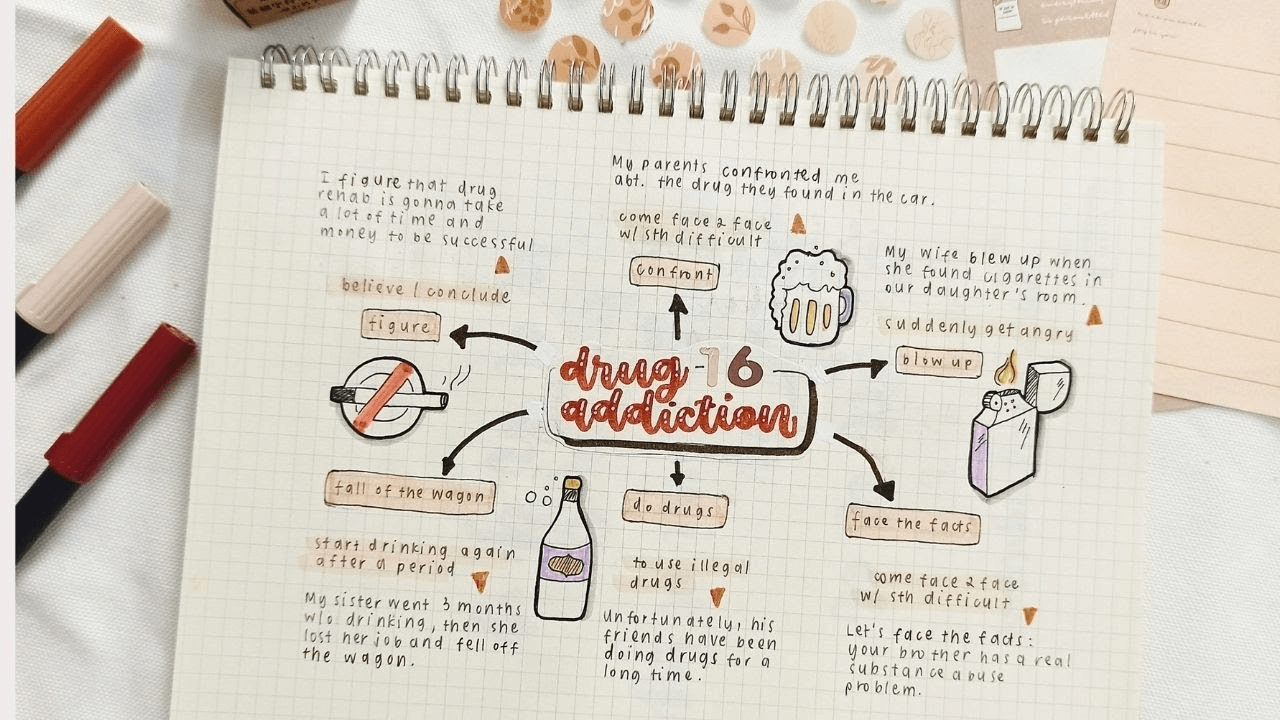 drug -16
addiction
I figure that drug
rehab is gonna take
a lot of time and
money to be successful
believe / conclude
figure
My parents confronted me
abt. the drug they found in the car.
come face 2 face
w/ sth difficult
confront
My wife blew up when
she found cigarettes in
our daughter's room.
suddenly get angry
blow up
fall of the wagon
start drinking again
after a period
My sister went 3 months
w/o drinking, then she
lost her job and fell off
the wagon.
do drugs
to use illegal
drugs
Unfortunately, his
friends have been
doing drugs for a
long time.
face the facts
come face 2 face
w/ sth difficult
Let's face the facts:
your brother has a real
substance abuse
problem.